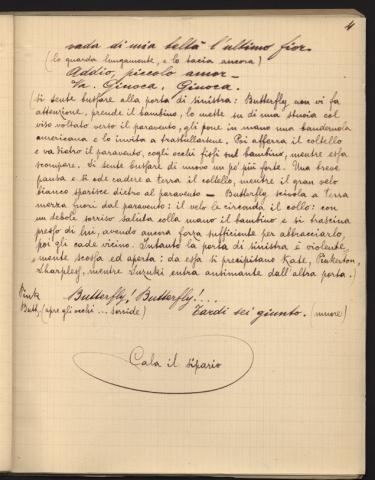 4
vada di mia beltà l'ultimo fior.
(lo guarda lungamente, e lo bacia ancora)
Addio, piccolo amor –
Va. Gioca, Gioca.
(si sente bussare alla porta di sinistra: Butterfly, non vi fa
attenzione, prende il bambino, lo mette su di una stuoia col
viso voltato verso il paravento, gli pone in mano una banderuola
americana e lo invita a trastullarsene. Poi afferra il coltello
e va dietro il paravento, cogli occhi fissi sul bambino, mentre essa
scompare. Si sente bussare di nuovo un po' più forte. Una breve
pausa e s'ode cadere a terra il coltello, mentre il gran velo
bianco sparisce dietro al paravento – Butterfly scivola a terra
mezza fuori dal paravento: il velo le circonda il collo: con
un debole sorriso saluta colla mano il bambino e si trascina
presso di lui, avendo ancora forza sufficiente per abbracciarlo,
poi gli cade vicino. Intanto la porta di sinistra è violente,
mente scossa ed aperta: da essa si precipitano Kate, Pinkerton,
Sharpless, mentre Suzuki entra antimante dall'altra porta.)
Pink Butterfly! Butterfly!...
Butt. (apre gli occhi ... sorride) Tardi sei giunto. (muore)
Cala il sipario